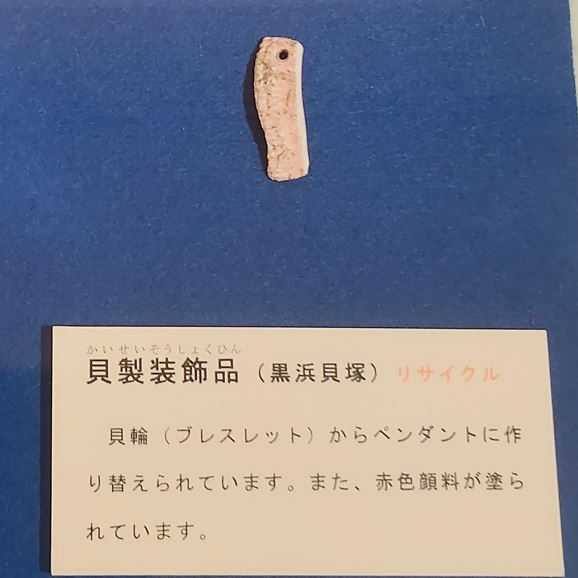 かいせいそうしょくひん
貝製装飾品（黒浜貝塚）リサイクル
貝輪（ブレスレット）からペンダントに作
り替えられています。また、赤色顔料が塗ら
れています。